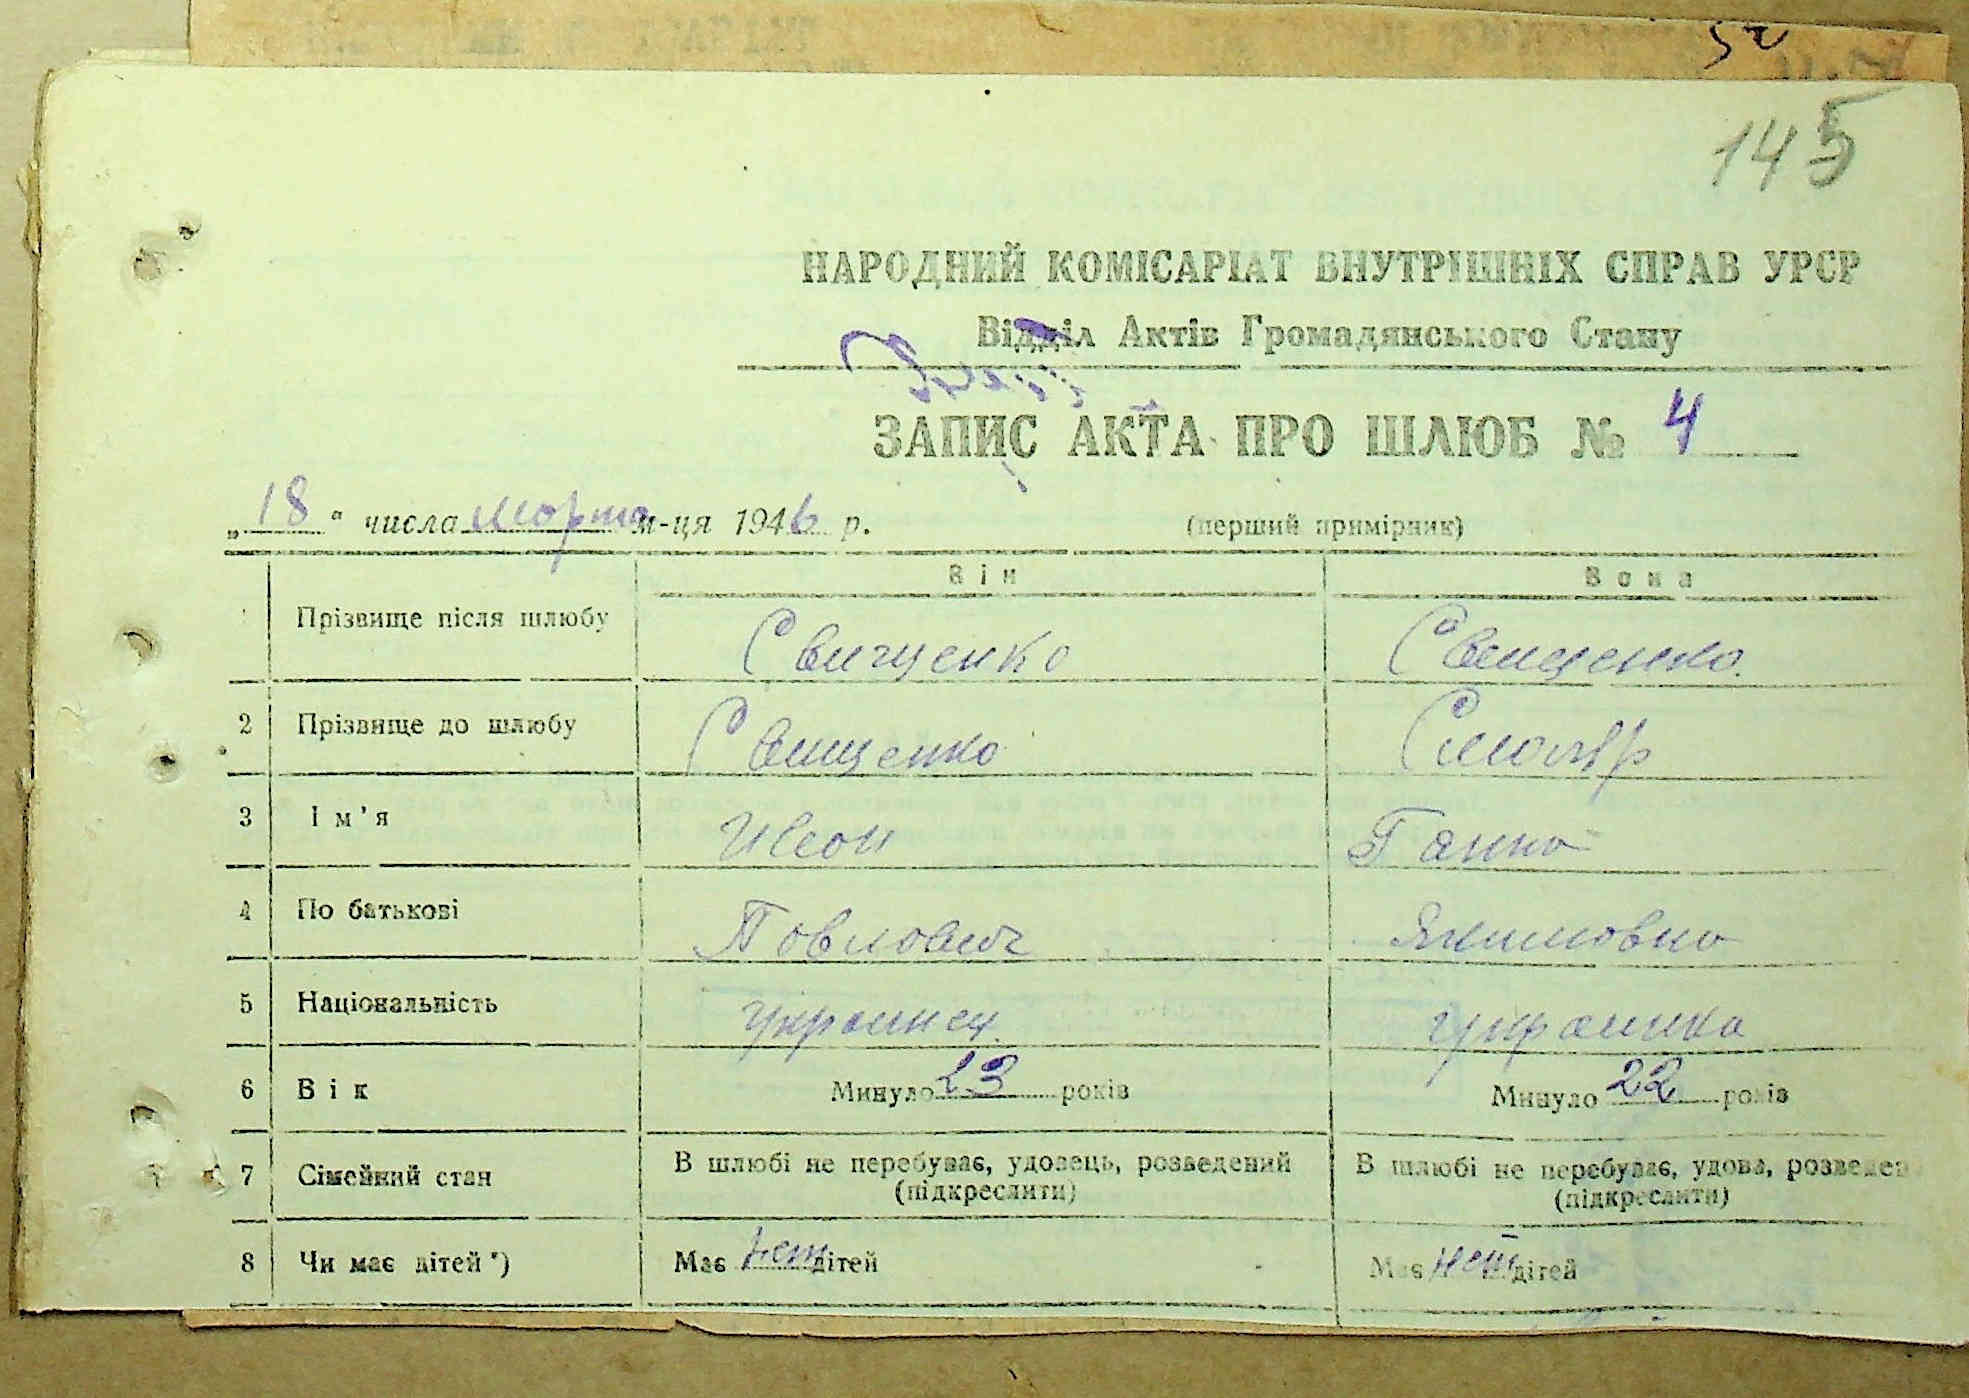 145
НАРОДНИЙ КОМІСАРІАТ ВНУТРІШНІХ СПРАВ УРСР
Відділ Актів Громадянського Стану
ЗАПИС АКТА ПРО ШЛЮБ № 4
„18" числа марта м-ця 1946 р. (перший примірник)
Він Вона
Прізвище після шлюбу Свищенко Свищенко
2 Прізвище до шлюбу Свищенко Смоляр
3 Ім'я Иван Ганна
4 По батькові Павлович Якимовна
5 Національність украинец украинка
6 Вік Минуло 23 років Минуло 22 років
7 Сімейний стан В шлюбі не перебуває, удовець, розведений В шлюбі не перебуває, удова, розведен
(підкреслити) (підкреслити)
8 Чи має дітей*) Має нет дітей Має нет дітей